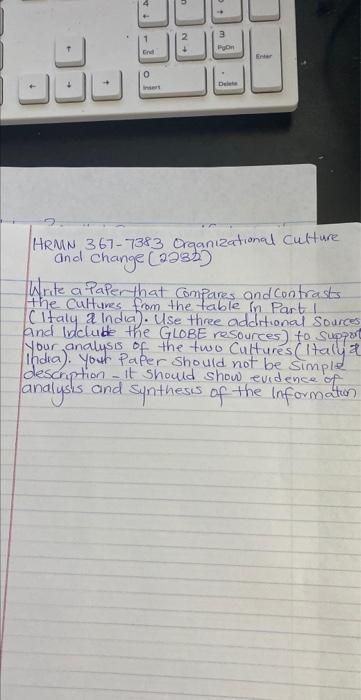 4
←
5
→
1
End
2
↓
3
PgDn
Enter
0
Insert
.
Delete
↑
←
↓
→
HRMN 367-7383 Organizational Culture
and Change (2232)
Write a Paper that Compares and Contrasts
the Cultures from the table in Part 1
(Italy & India). Use three additional Sources
and Include the GLOBE resources) to Support
Your analysis of the two Cultures (Italy &
India). Your Paper should not be simple
description - it should show evidence of
analysis and synthesis of the Information